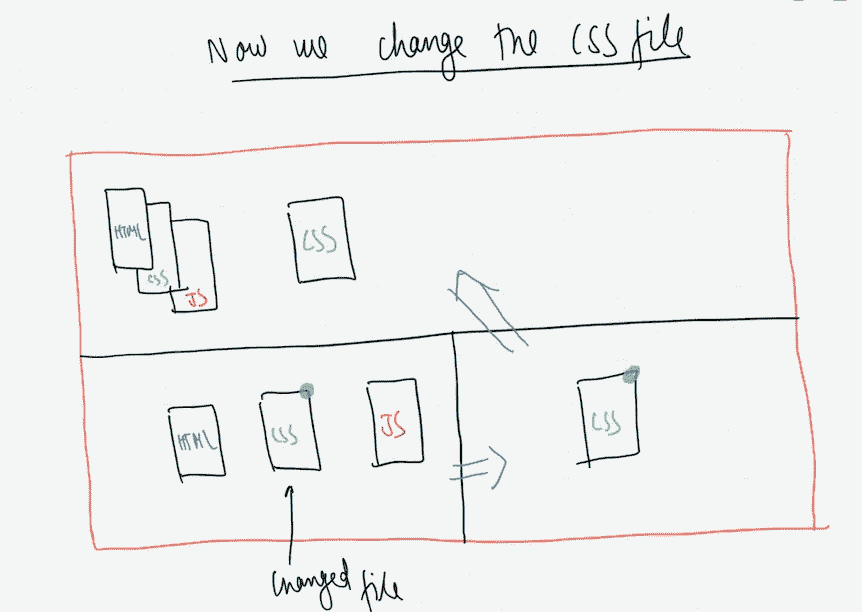 Now we change the CSS file
HTML
CSS
JS
CSS
HTML
CSS
JS
CSS
changed file